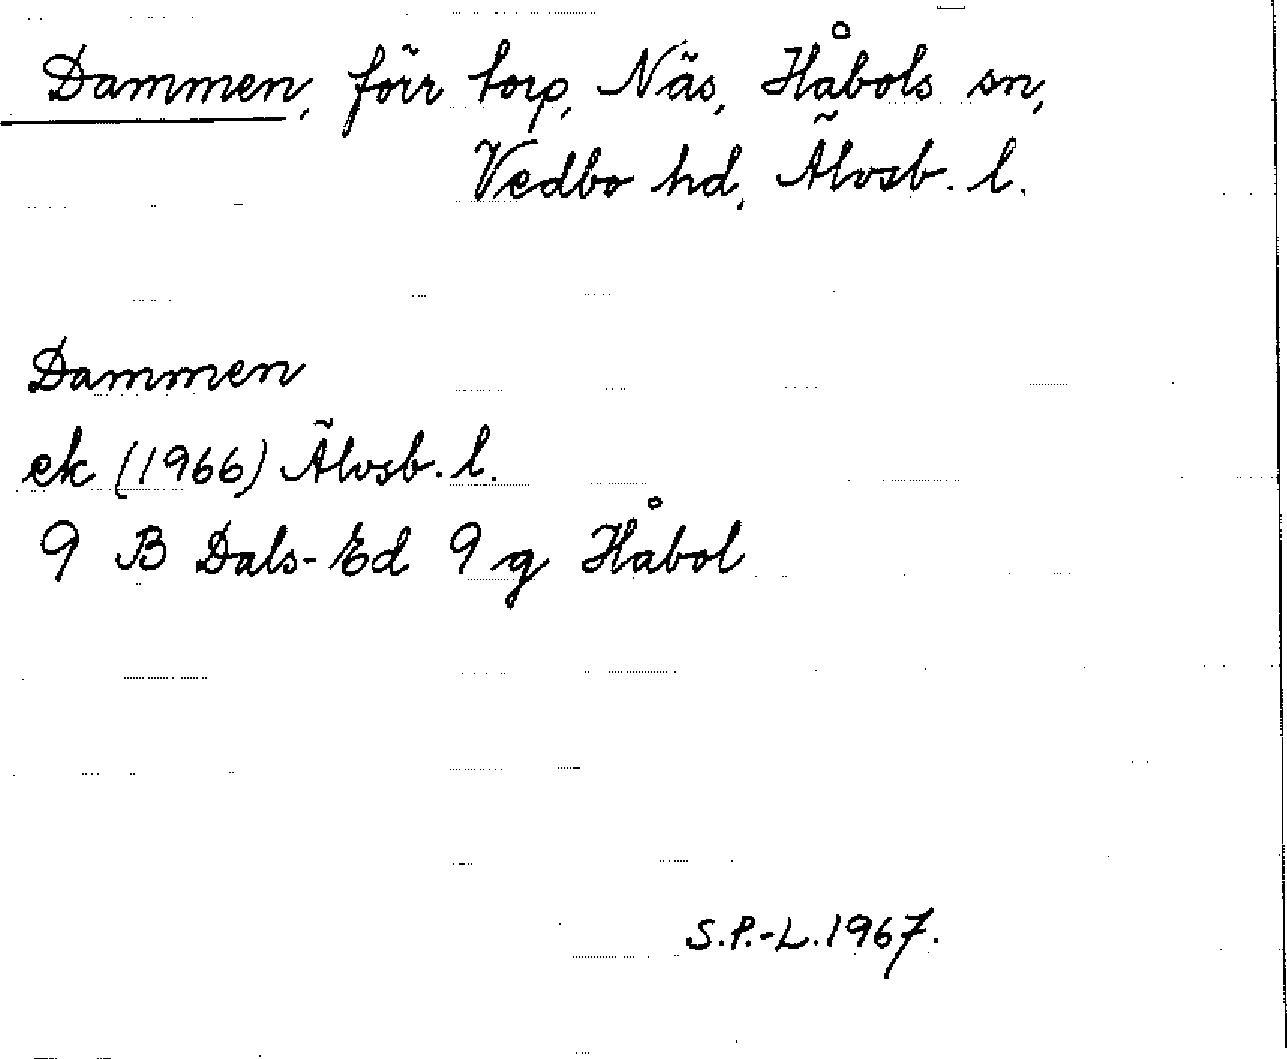 Dammen, förr torp, Näs, Håbols sn,
Vedbo hd, Älvsb. l.
Dammen
ek (1966) Älvsb. l.
9 B Dals-Ed 9 g Håbol
S.P.-L. 1967.